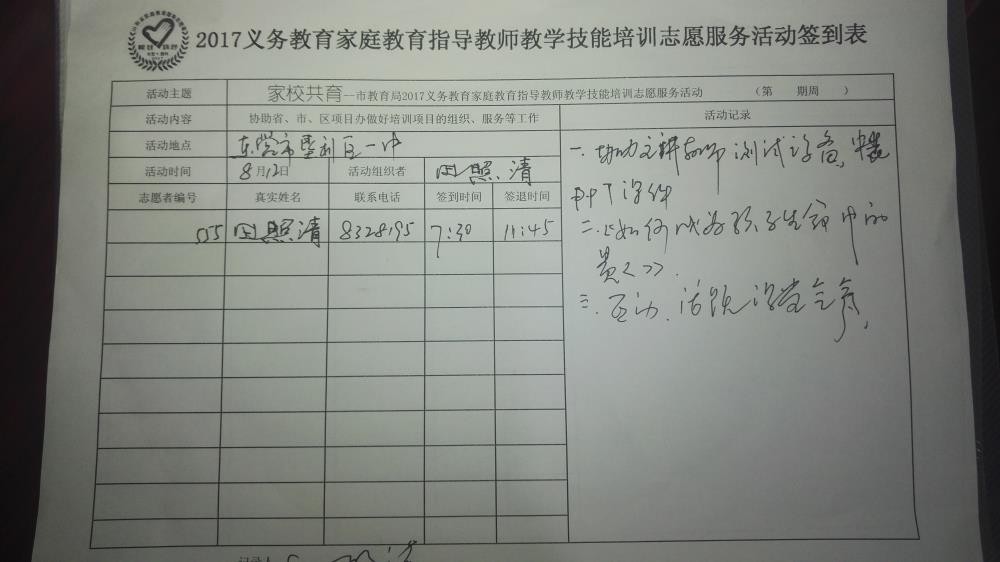 2017义务教育家庭教育指导教师教学技能培训志愿服务活动签到表
活动主题 家校共育--市教育局2017义务教育家庭教育指导教师教学技能培训志愿服务活动 （第 期周 ）
活动内容 协助省、市、区项目办做好培训项目的组织、服务等工作 活动记录
活动地点 东营市垦利区一中
活动时间 8月12日 活动组织者 田照清
志愿者编号 真实姓名 联系电话 签到时间 签退时间
555 田照清 8328195 7:30 11:45
一.协助主讲教师测试设备,安装
PPT课件
二.《如何成为孩子生命中的
贵人》.
三.互动、活跃课堂气氛,
记录人